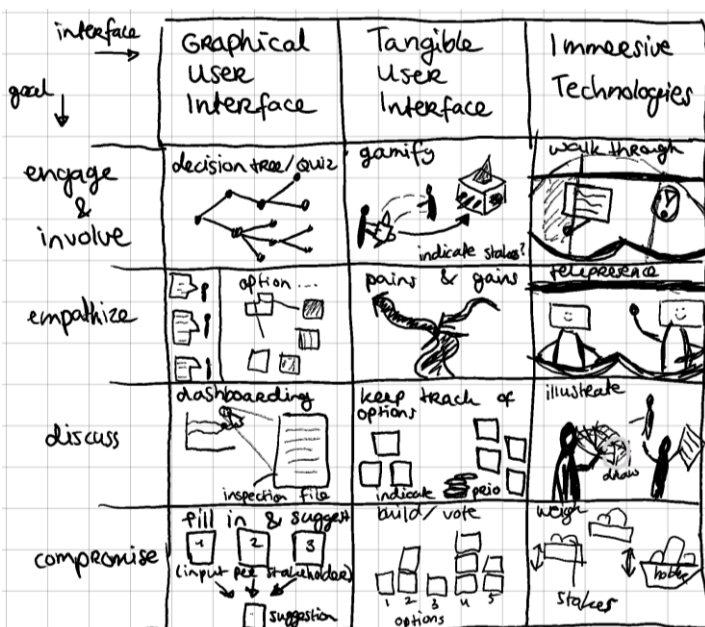 interface
goal
Graphical
User
Interface
Tangible
User
Interface
Immersive
Technologies
engage
&
involve
decision tree/quiz
gamify
indicate stakes?
walk through
empathize
option ...
pains & gains
telepresence
discuss
dashboarding
inspection file
keep track of
options
indicate prio
illustrate
draw
compromise
fill in & suggest
1 2 3
(input per stakeholder)
suggestion
build/vote
1 2 3 4 5
options
weigh
stakes